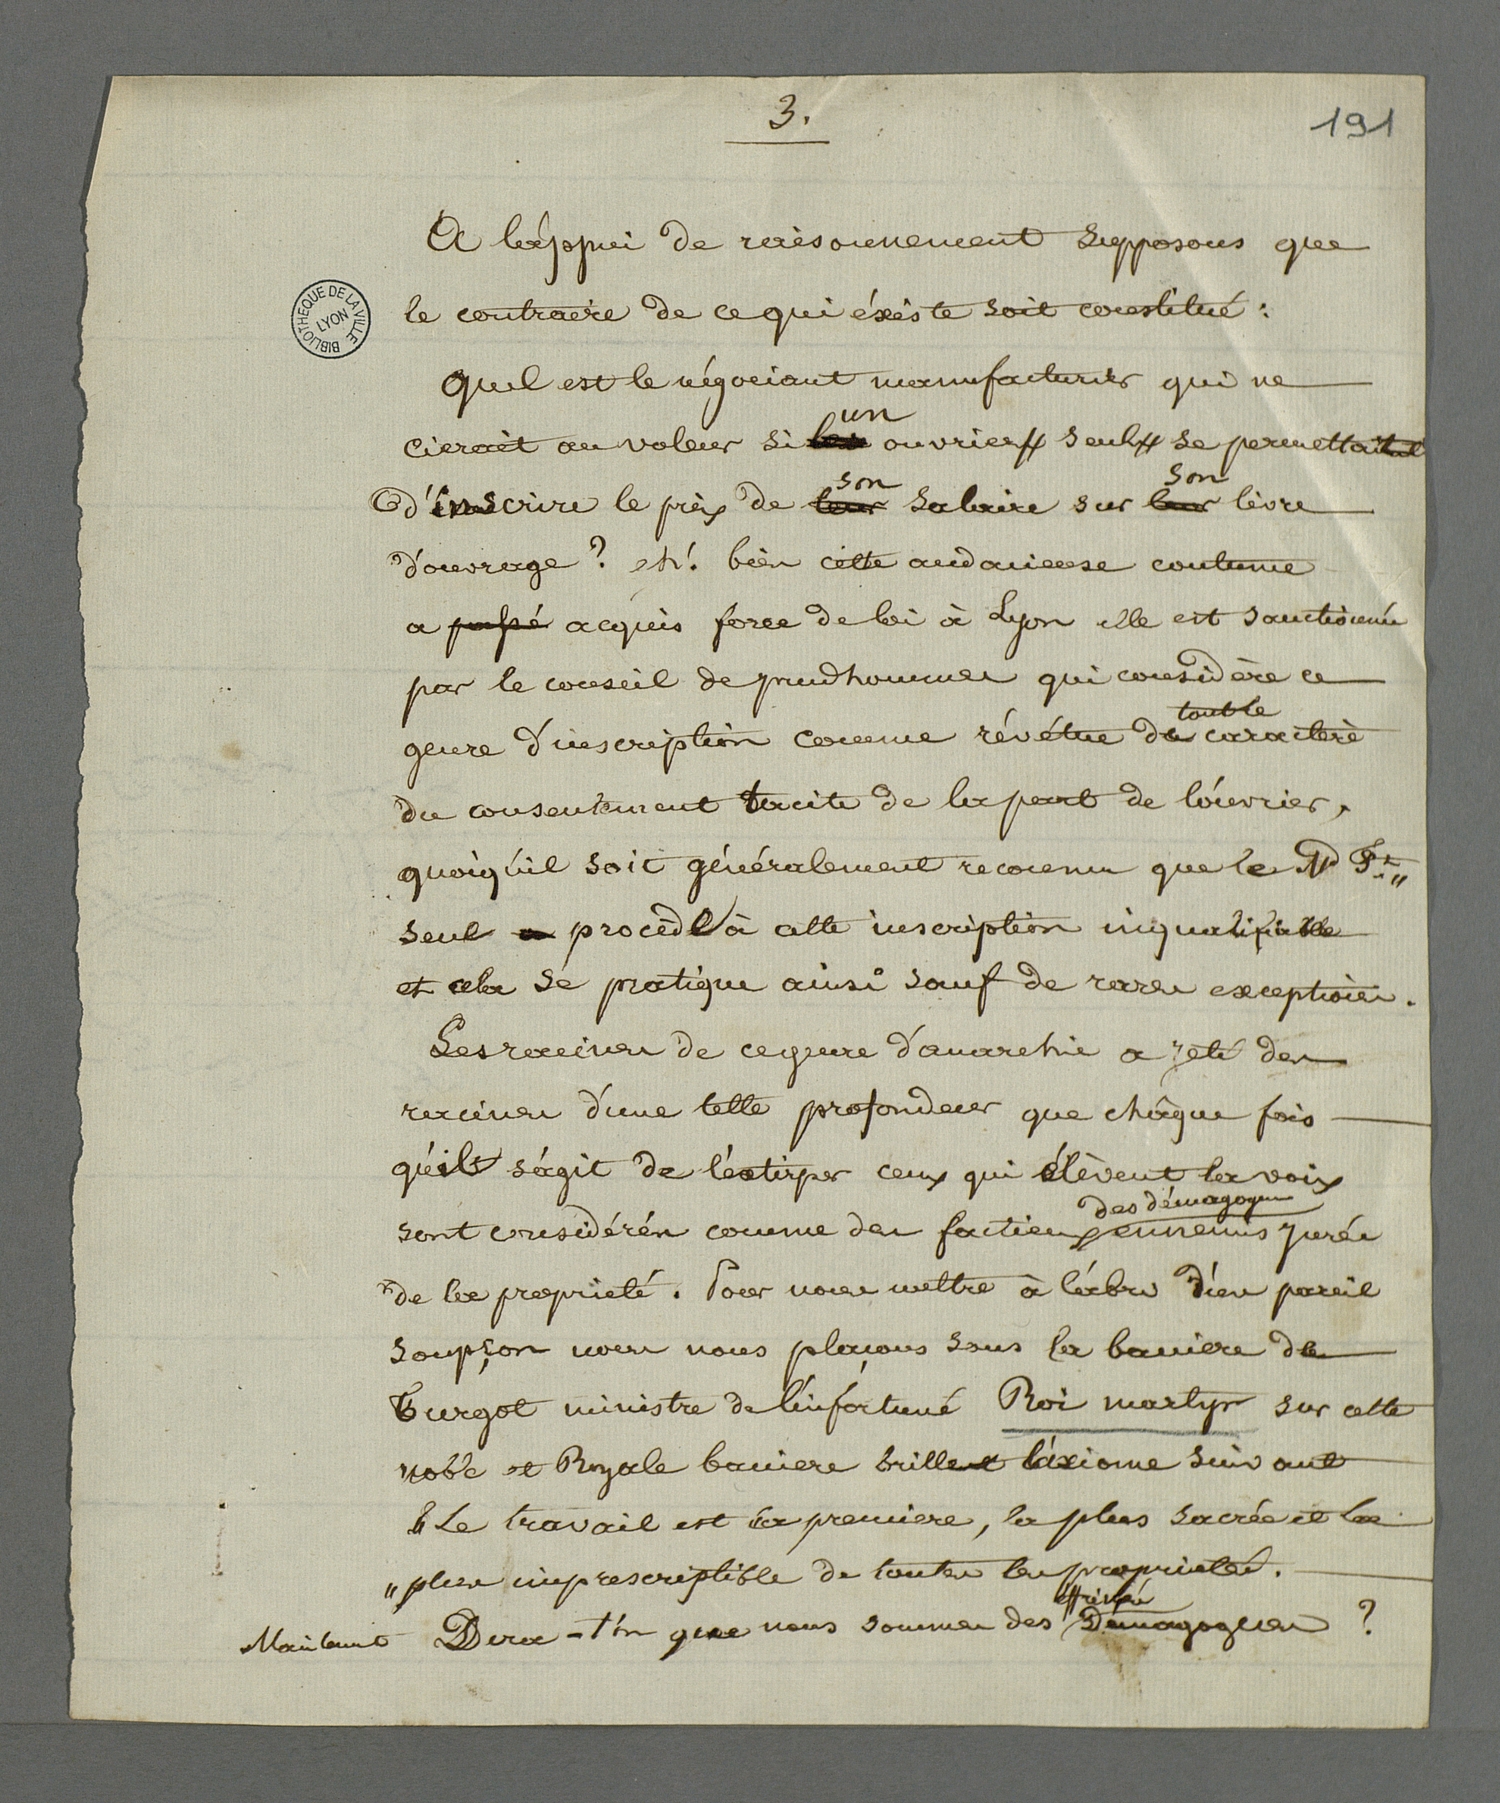 3.
191
BIBLIOTHEQUE DE LA VILLE
LYON
A l'appui de raisonnement supposons que
le contraire de ce qui éxiste soit constitué :
Quel est le négociant manufacturier qui ne
un
cierait au voleur si ouvrier seul se permettait
son son
d'inscrire le prix de leur salaire sur leur livre
d'ouvrage ? eh ! bien cette audacieuse coutume
a passé acquis force de loi à Lyon elle est sanctionnée
par le conseil de prudhommes qui considère ce
touble
genre d'inscription comme révétue de caractère
du consentement tacite de la part de l'ouvrier,
quoiqu'il soit généralement reconnu que le Md Ft
seul a procède à cette inscription inqualifiable
et cela se pratique ainsi sauf de rares exceptions.
Les racines de ce genre d'anarchie a jeté des
racines d'une telle profondeur que châque fois
qu'ils s'agit de l'extirper ceux qui élèvent la voix
des démagogues
sont considérés comme des factieux ennemis jurés
de la proprieté. Pour nous mettre à l'abri d'un pareil
soupçon nous nous plaçons sous la baniere de
Turgot ministre de l'infortuné Roi martyr sur cette
noble et Royale baniere brille l'áxiome suivant
" Le travail est la premiere, la plus sacrée et la
" plus imprescriptible de toutes les proprietés.
Maintenant Dira-t'on que nous sommes des Démagogues ?